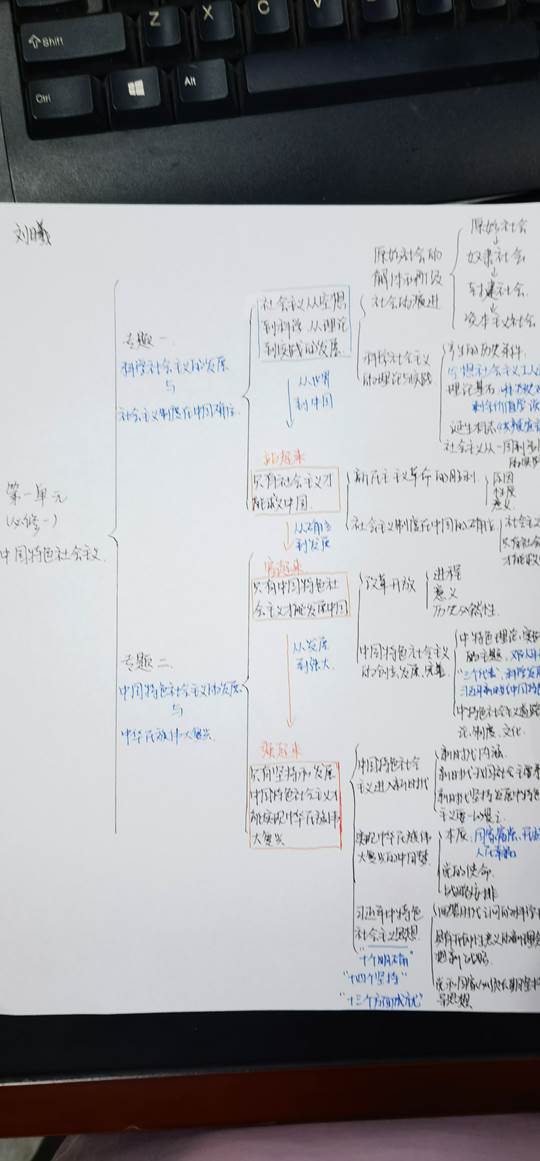 Shift
Z
X
C
V
Ctrl
Alt
刘曦
第一单元
(必修一)
中国特色社会主义
专题一
科学社会主义的发展
与
社会主义制度在中国确立
社会主义从空想
到科学、从理论
到实践的发展
原始社会的
解体和阶级
社会的演进
原始社会
奴隶社会
封建社会
资本主义社会
科学社会主义
的理论与实践
产生的历史条件
空想社会主义
理论基石
剩余价值学说
诞生标志
社会主义从一国到多国
从世界
到中国
站起来
只有社会主义才
能救中国
新民主主义革命的胜利
原因
性质
意义
社会主义制度在中国的确立
社会主义
只有社会
才能救
从确立
到发展
专题二
中国特色社会主义的发展
与
中华民族伟大复兴
富起来
只有中国特色社
会主义才能发展中国
改革开放
进程
意义
历史必然性
中国特色社会主义
的创立、发展、完善
中特色理论
的主题
"三个代表"、科学发展
中特色社会主义道路
论、制度、文化
从发展
到强大
强起来
只有坚持和发展
中国特色社会主义才
能实现中华民族伟
大复兴
中国特色社会
主义进入新时代
新时代内涵
新时代我国社会主要
新时代坚持发展中特色
实现中华民族伟
大复兴的中国梦
本质
国家富强
党的使命
战略安排
习近平中特色
社会主义思想
"十个明确"
"十四个坚持"
"十三个方面成就"
回答时代之问的科学